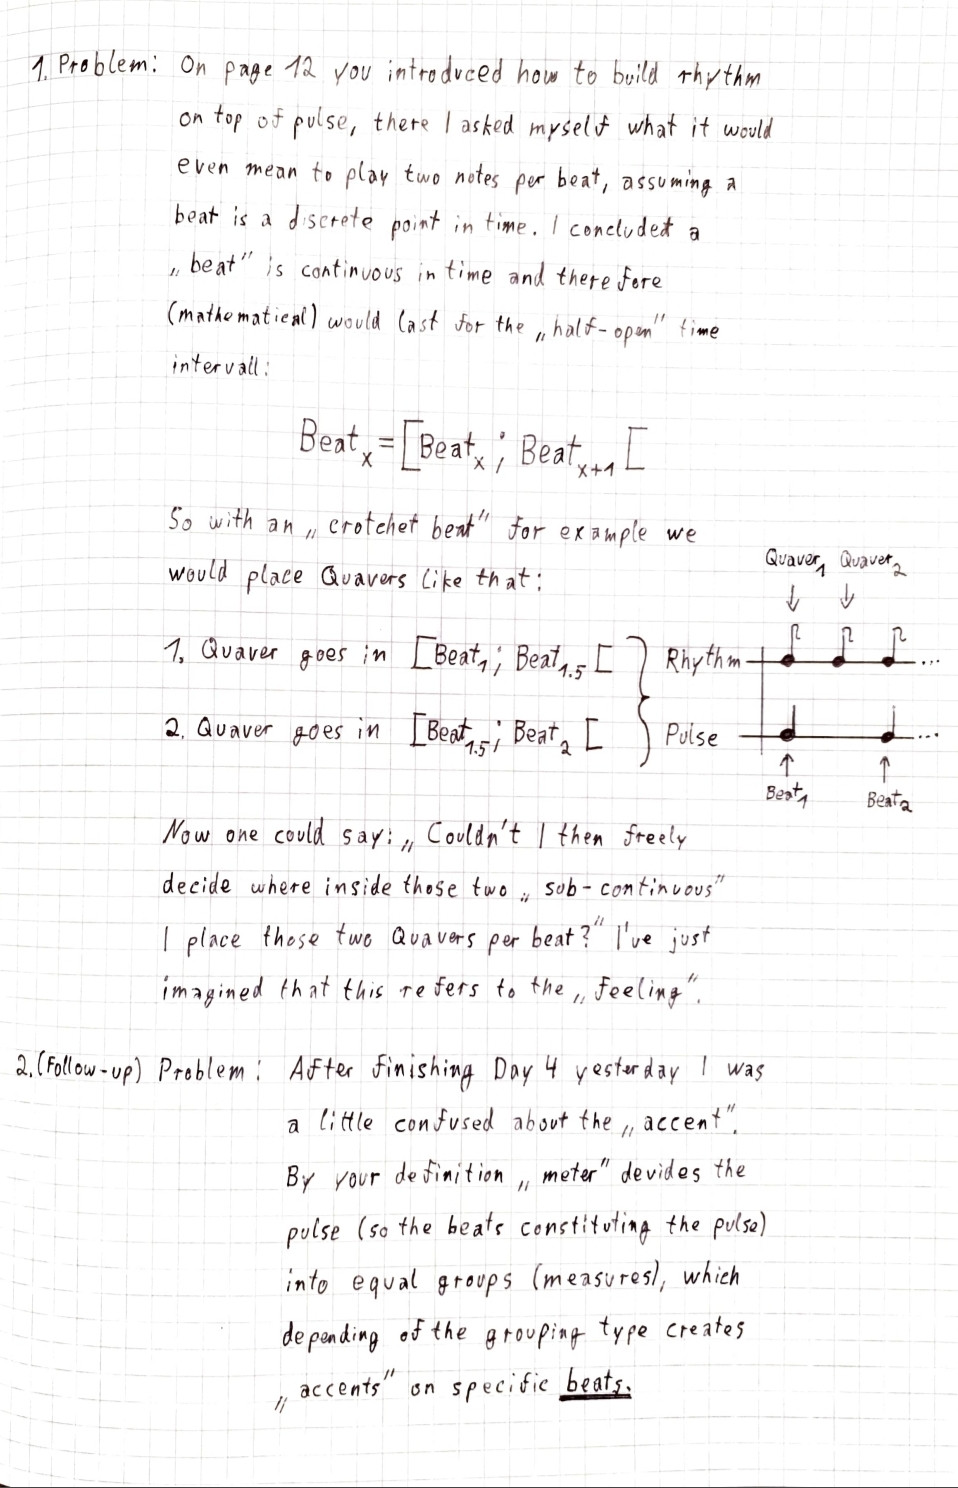 1. Problem: On page 12 you introduced how to build rhythm
on top of pulse, there I asked myself what it would
even mean to play two notes per beat, assuming a
beat is a discrete point in time. I concluded a
„beat" is continuous in time and therefore
(mathematical) would last for the „half-open" time
intervall:
Beat_x = [Beat_x ; Beat_x+1 [
So with an „crotchet beat" for example we
would place Quavers like that:
Quaver_1 Quaver_2
1. Quaver goes in [Beat_1 ; Beat_1.5 [ } Rhythm ...
2. Quaver goes in [Beat_1.5 ; Beat_2 [ Pulse ...
Beat_1 Beat_2
Now one could say: „Couldn't I then freely
decide where inside those two „sub-continuous"
I place those two Quavers per beat?" I've just
imagined that this refers to the „feeling".
2. (Follow-up) Problem: After finishing Day 4 yesterday I was
a little confused about the „accent".
By your definition „meter" devides the
pulse (so the beats constituting the pulse)
into equal groups (measures), which
depending of the grouping type creates
„accents" on specific beats.